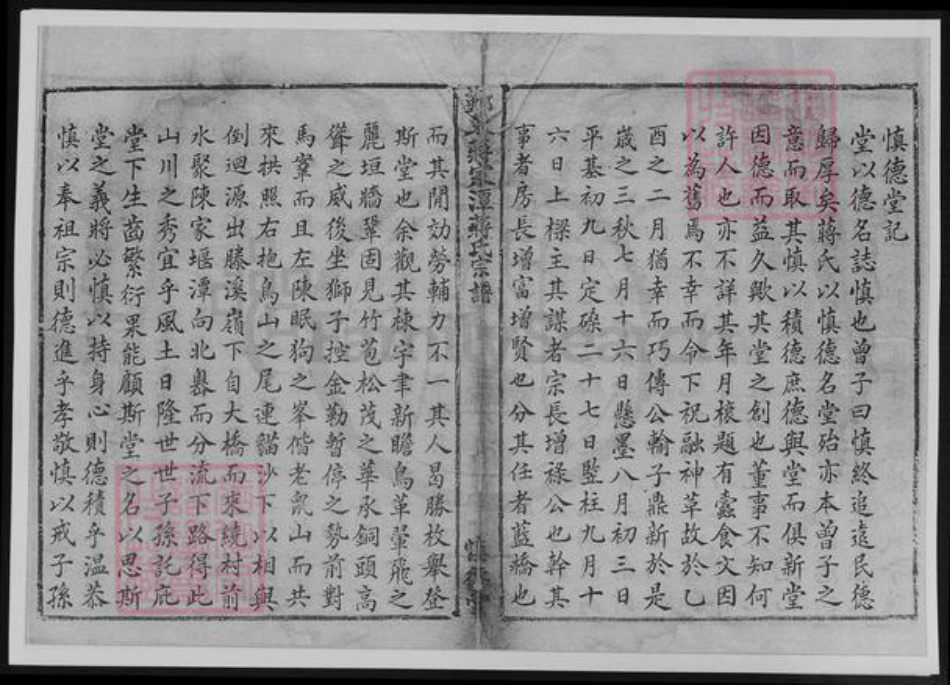 慎德堂記
堂以德名誌慎也曾子曰慎終追遠民德
歸厚矣蔣氏以慎德名堂殆亦本曾子之
意而取其慎以積德庶德與堂而俱新堂
因德而益久歟其堂之創也董事不知何
許人也亦不詳其年月榱題有蠹食文因
以為舊焉不幸而令下祝融神草故於乙
酉之二月猶幸而巧傳公輸子鼎新於是
歲之三秋七月十六日懸墨八月初三日
平基初九日定磉二十七日豎柱九月十
六日上樑主其謀者宗長增祿公也幹其
事者房長增富增賢也分其任者藍橋也
蔣氏宗譜
而其閒効勞輔力不一其人曷勝枚舉登
斯堂也余觀其棟宇聿新瞻鳥革翬飛之
麗垣牆鞏固見竹苞松茂之華承銅頭高
聳之威後坐獅子控金勒暫停之勢前對
馬鞌而且左陳眠狗之峯偕老鼠山而共
來拱照右抱烏山之尾連貓沙下以相與
倒迴源出滕溪嶺下自大橋而來繞村前
水聚陳家堰潭向北嶴而分流下路得此
山川之秀宜乎風土日隆世世子孫託庇
堂下生齒繁衍果能顧斯堂之名以思斯
堂之義將必慎以持身心則德積乎温恭
慎以奉祖宗則德進乎孝敬慎以戒子孫